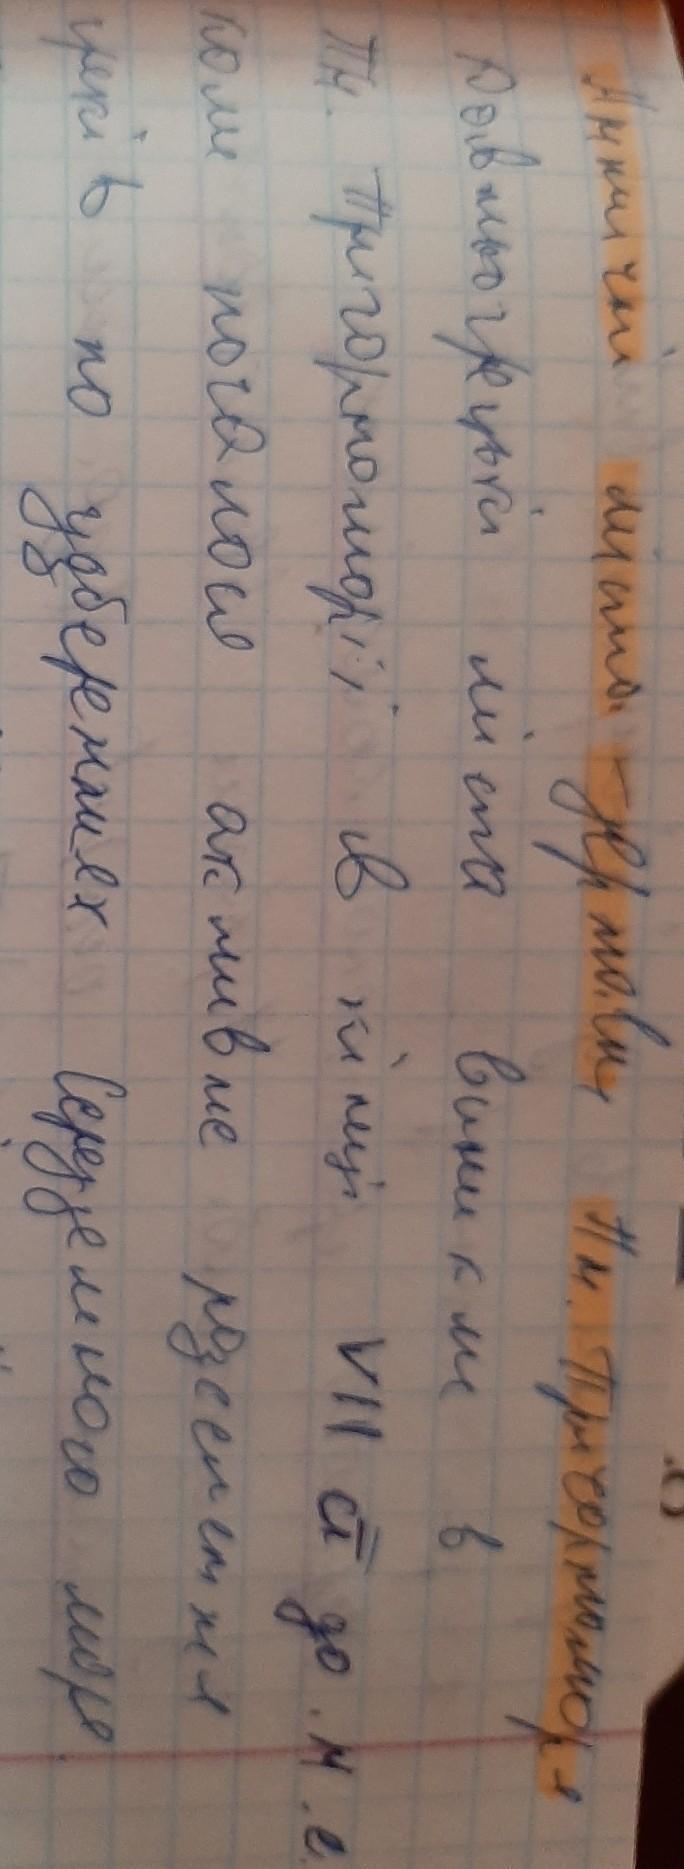 Античні міста-держави Пн. Причорноморя
Давньогрецькі міста виникли в
Пн. Причорноморії, в кінці VII ст до.н.е.
коли почалося активне розселення
греків по узбережжях Середземного моря.